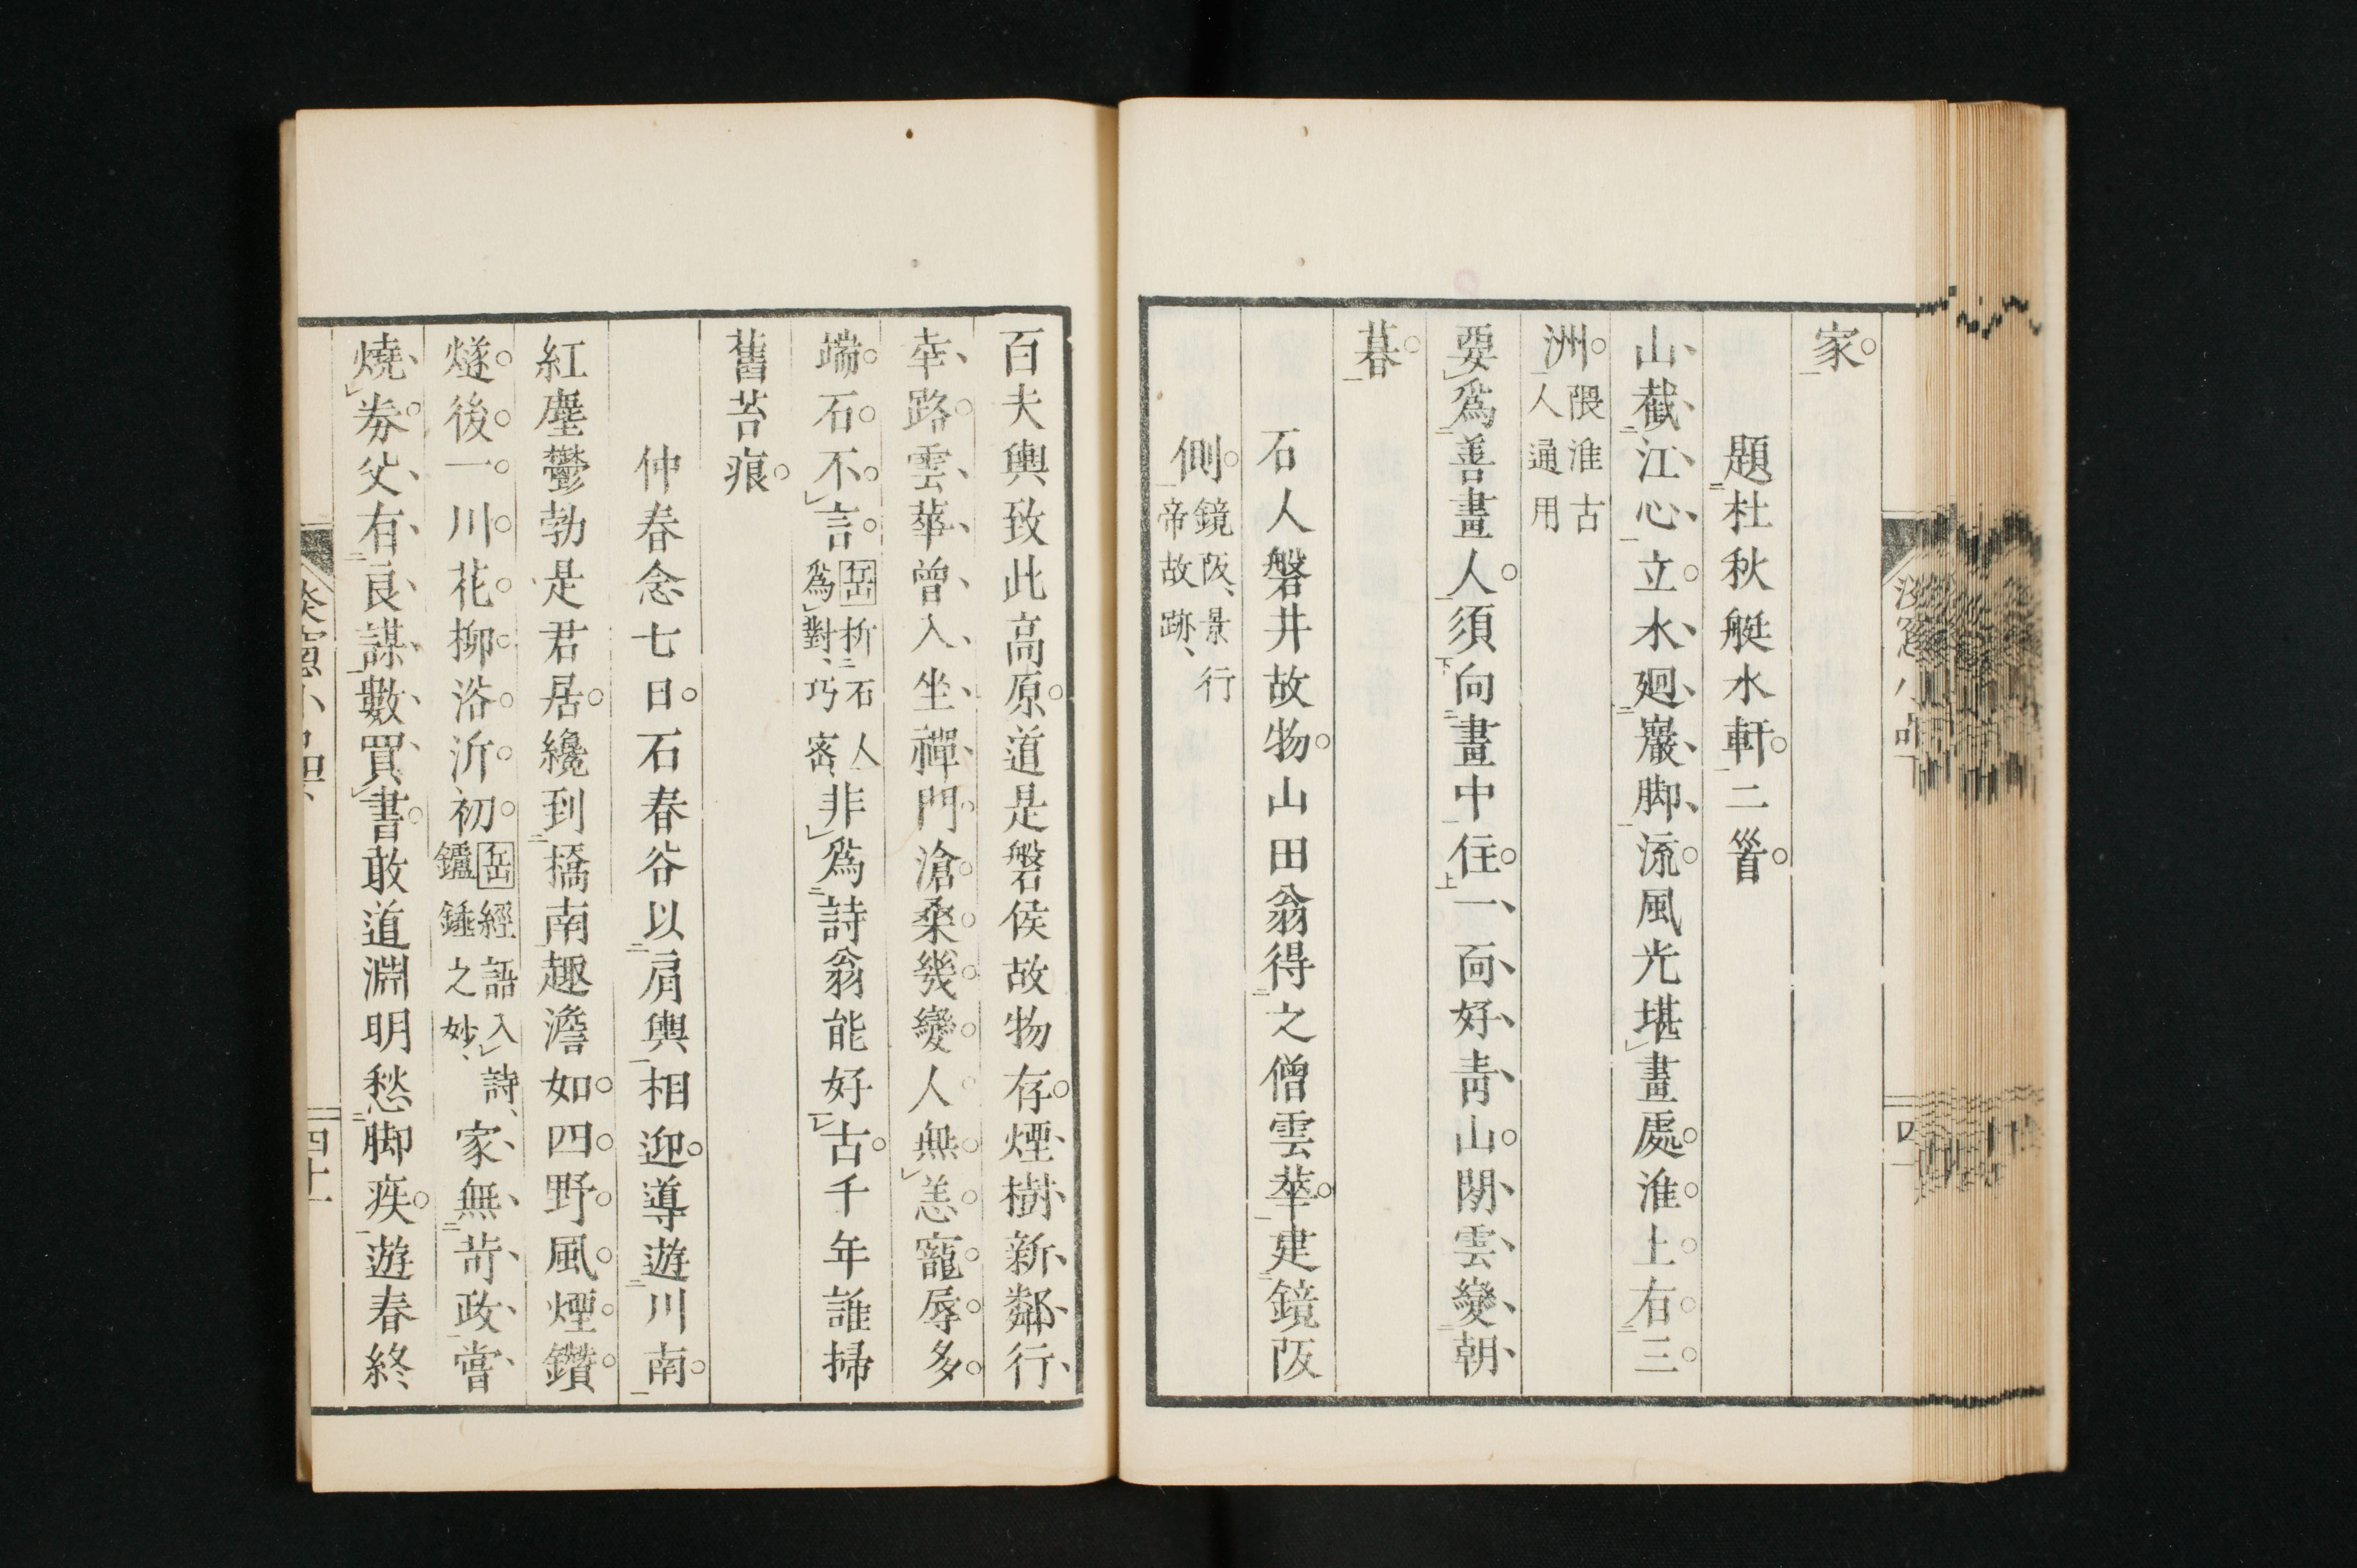 家。
題杜秋艇水軒。二首。
山截江心立。水廻巖脚流。風光堪畫處。淮上右三
洲。隈淮古人通用
要為善畫人。須向畫中住。一面好青山。閑雲變朝
暮。
石人磐井故物。山田翁得之僧雲華。建鏡阪
側。鏡阪、景行帝故跡、
百夫輿致此高原。道是磐侯故物存。煙樹新鄰行
幸路。雲華曾入坐禪門。滄桑幾變人無恙。寵辱多
端石不言。岳析石人為對、巧密、非為詩翁能好古。千年誰掃
舊苔痕。
仲春念七日。石春谷以肩輿相迎。導遊川南。
紅塵鬱勃是君居。纔到橋南趣澹如。四野風煙鑽
燧後。一川花柳浴沂初。岳經語入詩、鑪錘之妙、家無苛政嘗
燒券。父有良謀數買書。敢道淵明愁脚疾。遊春終
四十一